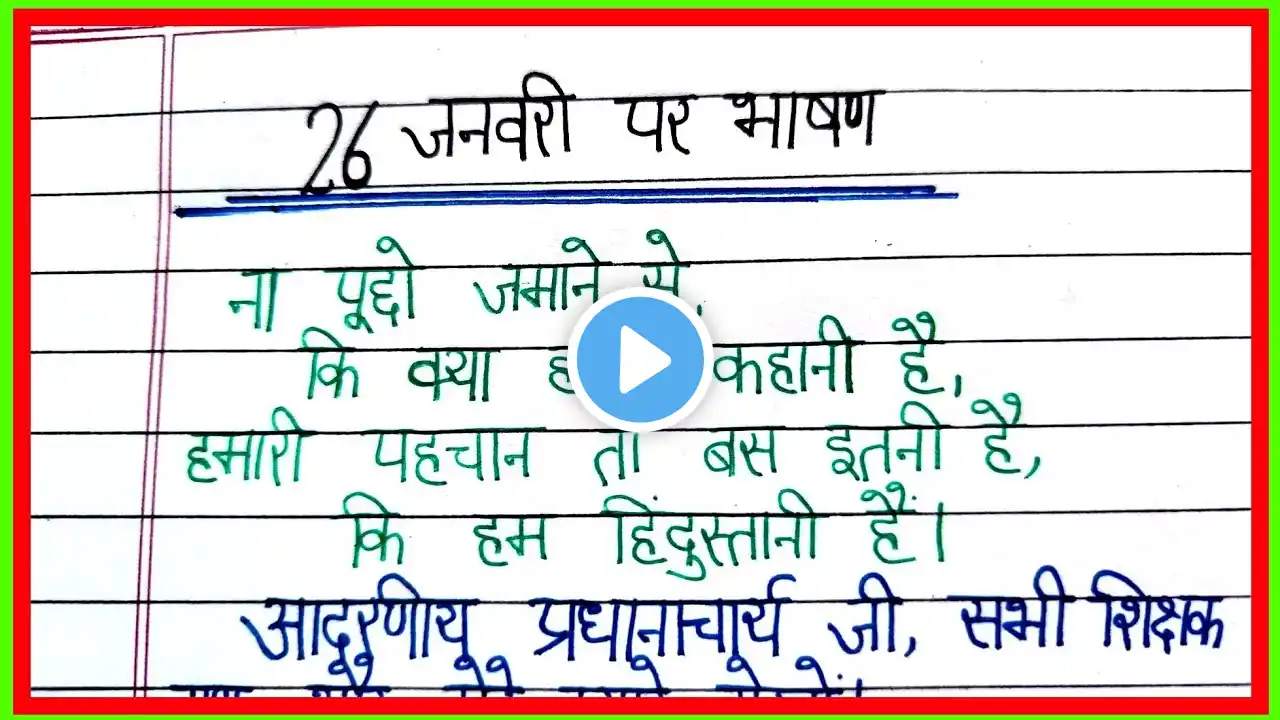 26 जनवरी पर भाषण
ना पूछो जमाने से,
कि क्या कहानी है,
हमारी पहचान तो बस इतनी है,
कि हम हिंदुस्तानी हैं।
आदरणीय प्रधानाचार्य जी, सभी शिक्षक